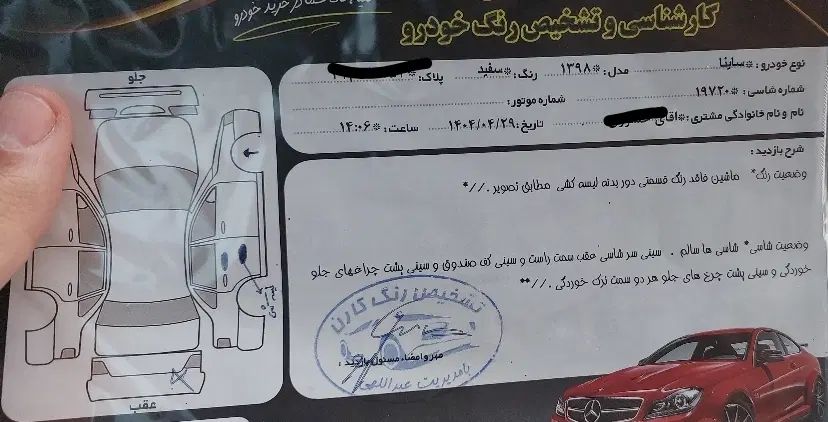 در خرید خودرو
کارشناسی و تشخیص رنگ خودرو
نوع خودرو : *ساینا مدل: *۱۳۹۸ رنگ: *سفید پلاک:
شماره شاسی : *۱۹۷۲۰ شماره موتور:
نام و نام خانوادگی مشتری : *آقای تاریخ: ۱۴۰۴/۰۴/۲۹ ساعت : *۱۴:۰۶
شرح بازدید :
وضعیت رنگ* ماشین فاقد رنگ قسمتی دور بدنه لیسه کشی مطابق تصویر .//*
وضعیت شاسی* شاسی ها سالم . سینی سر شاسی عقب سمت راست و سینی کف صندوق و سینی پشت چراغهای جلو
خوردگی و سینی پشت چرغ های جلو هر دو سمت ترک خوردگی .//**
تشخیص رنگ کارن
مهر و امضاء مسئول بازدید :
با مدیریت
جلو
عقب